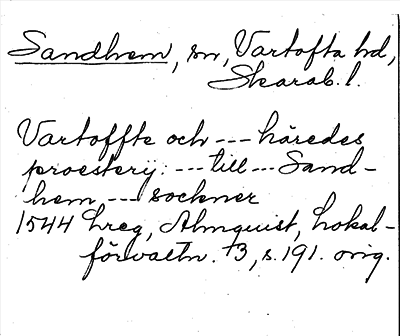 Sandhem, sn, Vartofta hd,
Skarab. l.
Vartoffte och --- häredes
proesterij: --- till --- Sand-
hem --- sockner
1544 hreg, Almquist, Lokal-
förvaltn. 3, s. 191. orig.